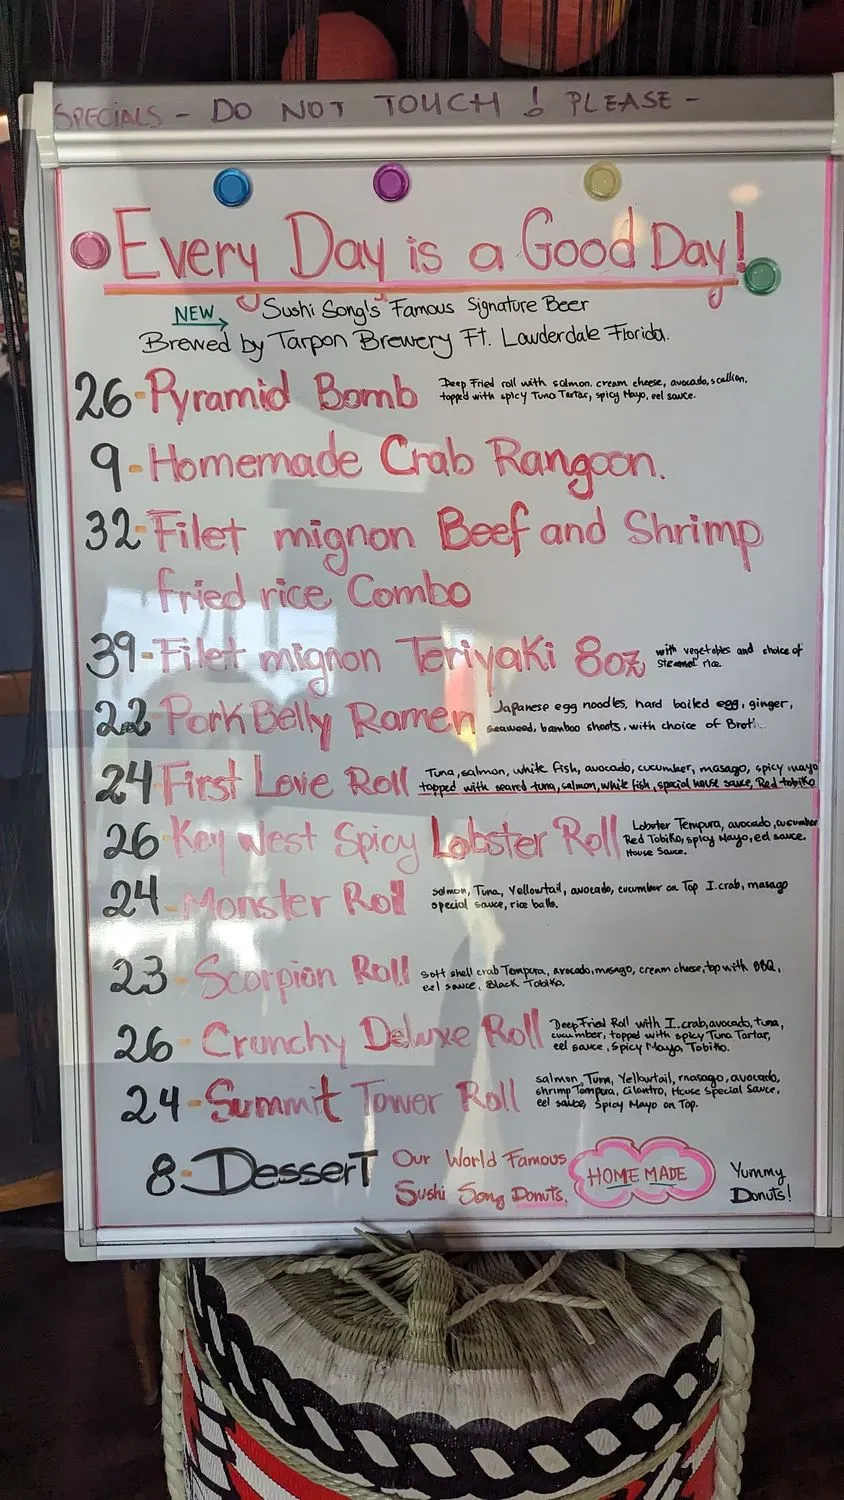 SPECIALS - DO NOT TOUCH ! PLEASE -
Every Day is a Good Day!
NEW Sushi Song's Famous Signature Beer
Brewed by Tarpon Brewery Ft. Lauderdale Florida.
26-Pyramid Bomb Deep Fried roll with salmon, cream cheese, avocado, scallion,
topped with spicy Tuna Tartar, spicy Mayo, eel sauce.
9-Homemade Crab Rangoon.
32-Filet mignon Beef and Shrimp
fried rice Combo
39-Filet mignon Teriyaki 8oz with vegetables and choice of
steamed rice.
22 Pork Belly Ramen Japanese egg noodles, hard boiled egg, ginger,
seaweed, bamboo shoots, with choice of
24 First Love Roll Tuna, salmon, white fish, avocado, cucumber, masago, spicy mayo
topped with seared tuna, salmon, white fish, special house sauce, Red tobiko
26-Key West Spicy Lobster Roll Lobster Tempura, avocado, cucumber
Red Tobiko, spicy Mayo, eel sauce.
House Sauce.
24-Monster Roll salmon, Tuna, Yellowtail, avocado, cucumber on Top I.crab, masago
special sauce, rice balls.
23-Scorpion Roll soft shell crab Tempura, avocado, masago, cream cheese, top with BBQ,
eel sauce, Black Tobiko.
26-Crunchy Deluxe Roll Deep Fried Roll with I.crab, avocado, tuna,
cucumber, topped with spicy Tuna Tartar,
eel sauce, Spicy Mayo, Tobiko.
24-Summit Tower Roll salmon, Tuna, Yellowtail, masago, avocado,
shrimp Tempura, Cilantro, House Special Sauce,
eel sauce, Spicy Mayo on Top.
8-Dessert Our World Famous HOME MADE Yummy
Sushi Song Donuts, Donuts!